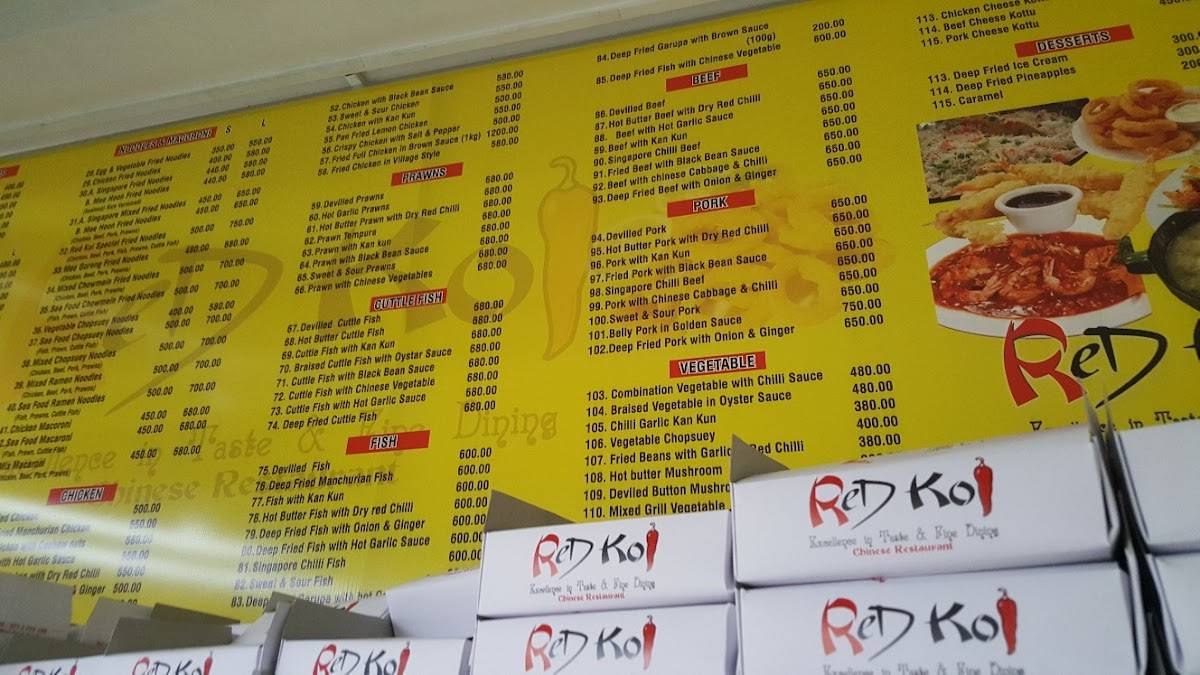 NOODLES & MACORONI S L
28. Egg & Vegetable Fried Noodles 350.00 550.00
29. Chicken Fried Noodles 400.00 580.00
30.A. Singapore Fried Noodles 440.00 580.00
B. Mee Hoon Fried Noodles 440.00 580.00
31.A. Singapore Mixed Fried Noodles 450.00 650.00
B. Mee Hoon Fried Noodles 450.00 650.00
(Chicken, Beef, Pork, Prawns)
32. Red Koi Special Fried Noodles 500.00 750.00
33. Mee Goreng Fried Noodles 480.00 680.00
(Chicken, Beef, Pork, Prawns)
34. Mixed Chowmein Fried Noodles 500.00 700.00
(Chicken, Beef, Pork, Prawns)
35. Sea Food Chowmein Fried Noodles 500.00 700.00
(Fish, Prawn, Cuttle Fish)
36. Vegetable Chopsuey Noodles 400.00 580.00
37. Sea Food Chopsuey Noodles 500.00 700.00
(Fish, Prawn, Cuttle Fish)
38. Mixed Chopsuey Noodles 500.00 700.00
(Chicken, Beef, Pork, Prawns)
39. Mixed Ramen Noodles 500.00 700.00
(Chicken, Beef, Pork, Prawns)
40. Sea Food Ramen Noodles 500.00 700.00
(Fish, Prawns, Cuttle Fish)
41. Chicken Macoroni 450.00 680.00
Sea Food Macaroni 450.00 680.00
(Fish, Prawn, Cuttle Fish)
Mix Macaroni 450.00 680.00
(Chicken, Beef, Pork, Prawns)
CHICKEN
Chicken 500.00
Manchurian Chicken 550.00
with Cashew nuts 560.00
with Hot Garlic Sauce 550.00
with Dry Red Chilli 550.00
& Ginger 500.00
52. Chicken with Black Bean Sauce 580.00
53. Sweet & Sour Chicken 550.00
54. Chicken with Kan Kun 500.00
55. Pan Fried Lemon Chicken 550.00
56. Crispy Chicken with Salt & Pepper 500.00
57. Fried Full Chicken in Brown Sauce (1kg) 1200.00
58. Fried Chicken in Village Style 580.00
PRAWNS
59. Devilled Prawns 680.00
60. Hot Garlic Prawns 680.00
61. Hot Butter Prawn with Dry Red Chilli 680.00
62. Prawn Tempura 680.00
63. Prawn with Kan kun 680.00
64. Prawn with Black Bean Sauce 680.00
65. Sweet & Sour Prawns 680.00
66. Prawn with Chinese Vegetables 680.00
CUTTLE FISH
67. Devilled Cuttle Fish 680.00
68. Hot Butter Cuttle Fish 680.00
69. Cuttle Fish with Kan Kun 680.00
70. Braised Cuttle Fish with Oyster Sauce 680.00
71. Cuttle Fish with Black Bean Sauce 680.00
72. Cuttle Fish with Chinese Vegetable 680.00
73. Cuttle Fish with Hot Garlic Sauce 680.00
74. Deep Fried Cuttle Fish 680.00
FISH
75. Devilled Fish 600.00
76. Deep Fried Manchurian Fish 600.00
77. Fish with Kan Kun 600.00
78. Hot Butter Fish with Dry red Chilli 600.00
79. Deep Fried Fish with Onion & Ginger 600.00
80. Deep Fried Fish with Hot Garlic Sauce 600.00
81. Singapore Chilli Fish 600.00
82. Sweet & Sour Fish
83. Deep Garupa with hot
84. Deep Fried Garupa with Brown Sauce 200.00
(100g)
85. Deep Fried Fish with Chinese Vegetable 600.00
BEEF
86. Devilled Beef 650.00
87. Hot Butter Beef with Dry Red Chilli 650.00
88. Beef with Hot Garlic Sauce 650.00
89. Beef with Kan Kun 650.00
90. Singapore Chilli Beef 650.00
91. Fried Beef with Black Bean Sauce 650.00
92. Beef with chinese Cabbage & Chilli 650.00
93. Deep Fried Beef with Onion & Ginger 650.00
PORK
94. Devilled Pork 650.00
95. Hot Butter Pork with Dry Red Chilli 650.00
96. Pork with Kan Kun 650.00
97. Fried Pork with Black Bean Sauce 650.00
98. Singapore Chilli Beef 650.00
99. Pork with Chinese Cabbage & Chilli 650.00
100. Sweet & Sour Pork 650.00
101. Belly Pork in Golden Sauce 750.00
102. Deep Fried Pork with Onion & Ginger 650.00
VEGETABLE
103. Combination Vegetable with Chilli Sauce 480.00
104. Braised Vegetable in Oyster Sauce 480.00
105. Chilli Garlic Kan Kun 380.00
106. Vegetable Chopsuey 400.00
107. Fried Beans with Garlic Red Chilli 380.00
108. Hot butter Mushroom
109. Devlled Button Mushroom
110. Mixed Grill Vegetable
113. Chicken Cheese Kottu
114. Beef Cheese Kottu
115. Pork Cheese Kottu
DESSERTS
113. Deep Fried Ice Cream 300.00
114. Deep Fried Pineapples 300.00
115. Caramel 200
ReD
ReD Koi
Taste & Fine Dining
Chinese Restaurant
ReD Koi
Excellence in Taste & Fine Dining
Chinese Restaurant
ReD Koi
Excellence in Taste & Fine Dining
Chinese Restaurant
ReD Koi
Excellence in Taste & Fine Dining
ReD Koi
ReD Koi
ReD Koi
ReD Koi